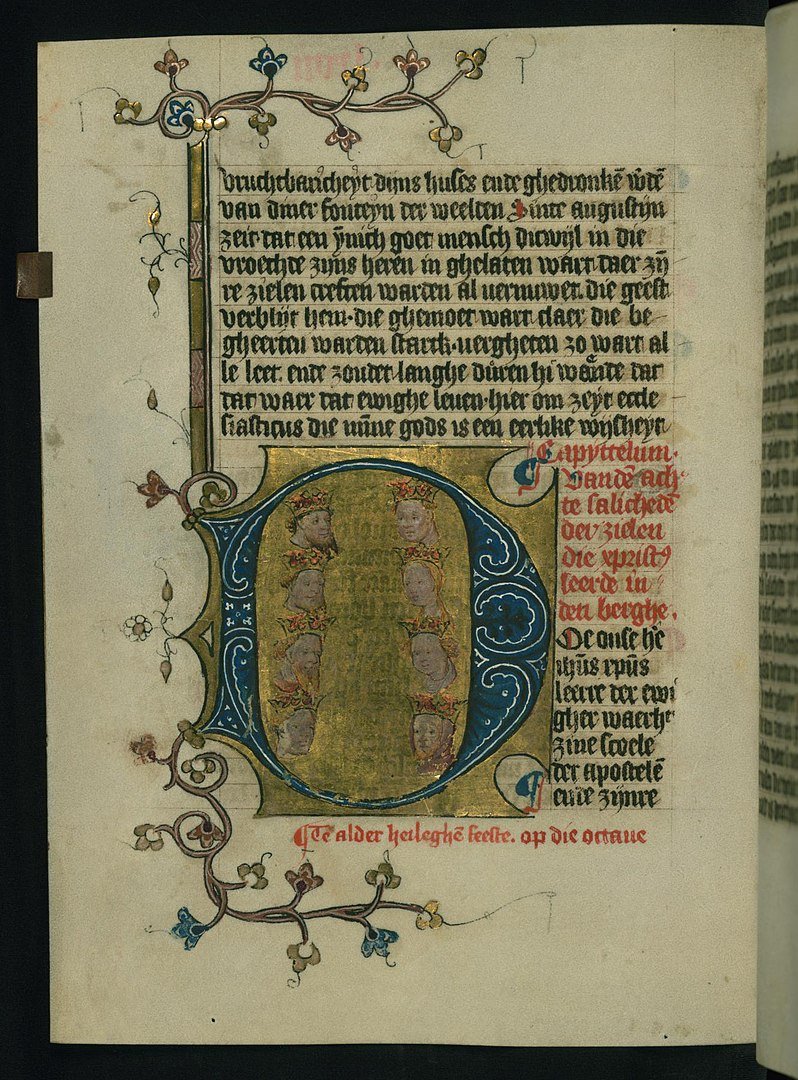 vruchtbaricheyt dijns huses ende ghedronkē vādē
van diner fonteyn der weelden Sinte augustijn
zeit dat een ynich goet mensch dicwijl in die
vroechde zijns heren in ghelaten wart daer zyn
re zielen creften warden al vernuwet. die geest
verblijt hem. die ghemoet wart claer die be
gheerten warden starck. vergheten zo wart al
le leet. ende zonder langhe duren hi waende dat
dat waer dat ewighe leuen. hier om zeyt eccle
siasticus die mīne gods is een eerlike wijsheyt
Capyttelum.
Vandē ach
te salichedē
der zielen
die xprist9
leerde in
den berghe.
Doe onse he
xp̄us
leerre der ewi
gher waerht
zine scoele
der apostelē
ende zijnre
Te alder heileghē feeste. op die octaue